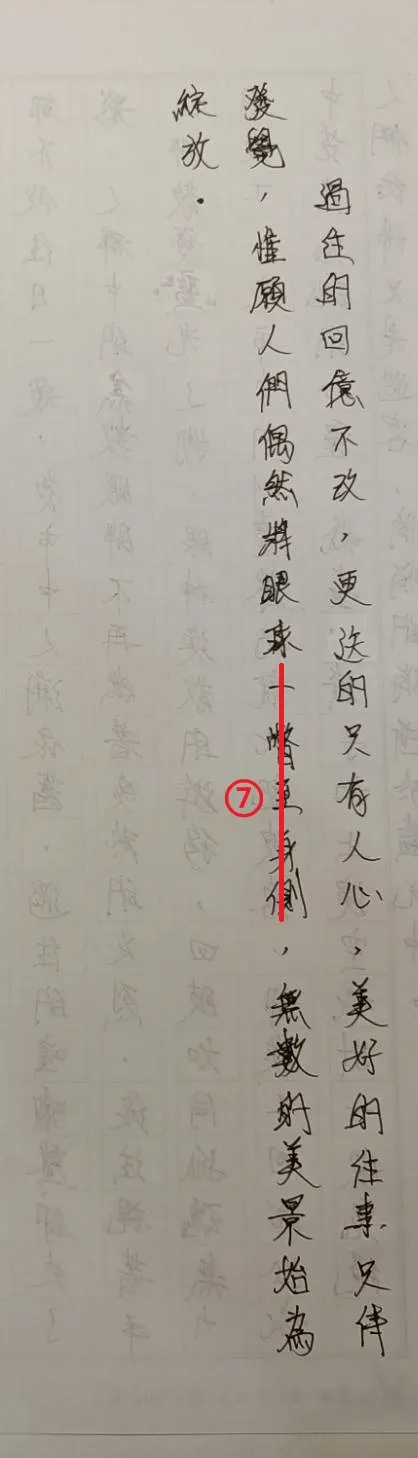 過往的回憶不改,更迭的只有人心,美好的往事只待
發覺,惟願人們偶然將眼球一瞥至身側,無數的美景始為
綻放.
⑦